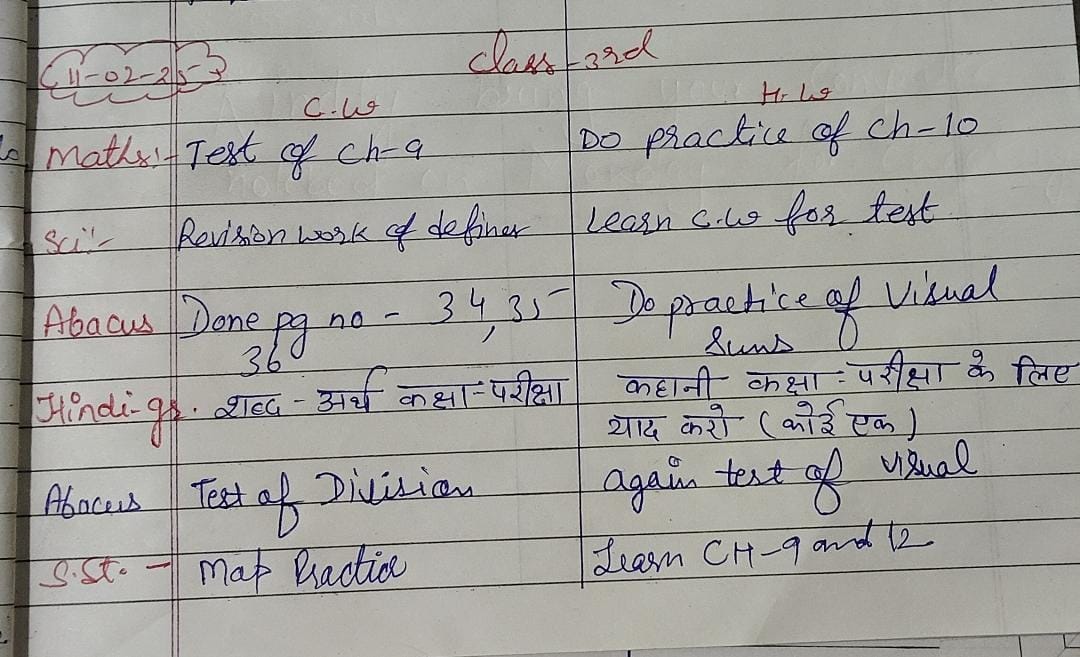 11-02-25 Class-3rd
C.W H.W
Maths:- Test of Ch-9 Do practice of Ch-10
Sci:- Revision work of defines Learn C.W for test
Abacus Done pg no - 34, 35 Do practice of Visual
36 Sums
Hindi-gr. शब्द-अर्थ कक्षा-परीक्षा कहानी कक्षा-परीक्षा के लिए
याद करो (कोई एक)
Abacus Test of Division again test of visual
S.St. - Map Practice Learn CH-9 and 12